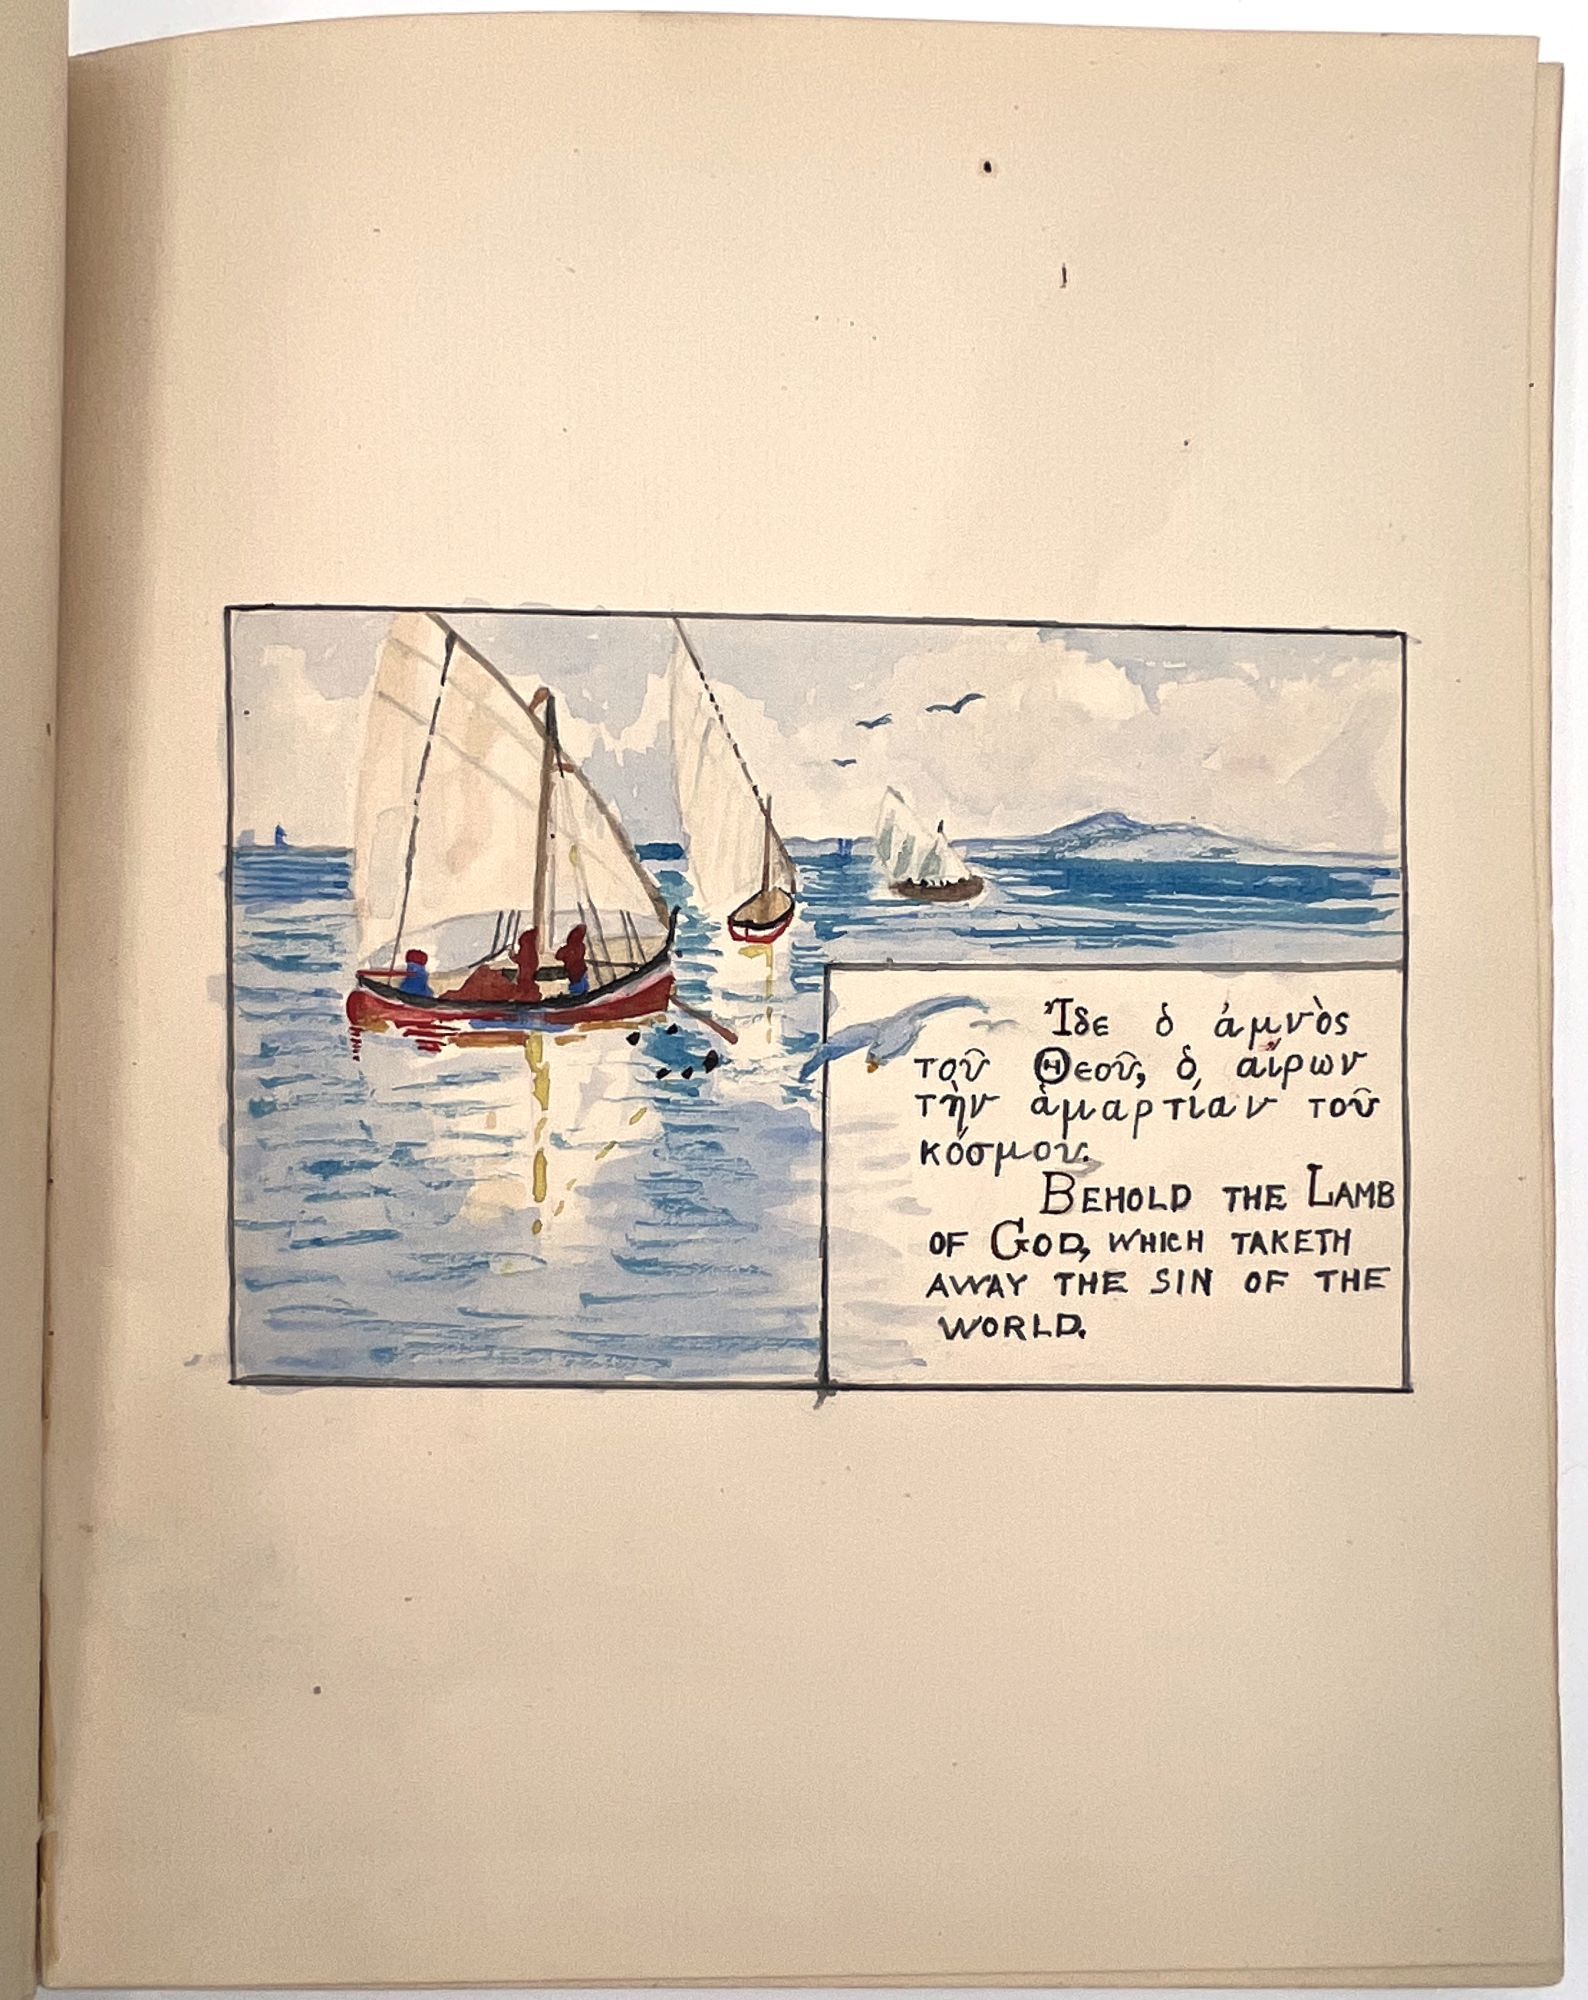 Ἴδε ὁ ἀμνὸς
τοῦ Θεοῦ, ὁ αἴρων
τὴν ἁμαρτίαν τοῦ
κόσμου.
BEHOLD THE LAMB
OF GOD, WHICH TAKETH
AWAY THE SIN OF THE
WORLD.